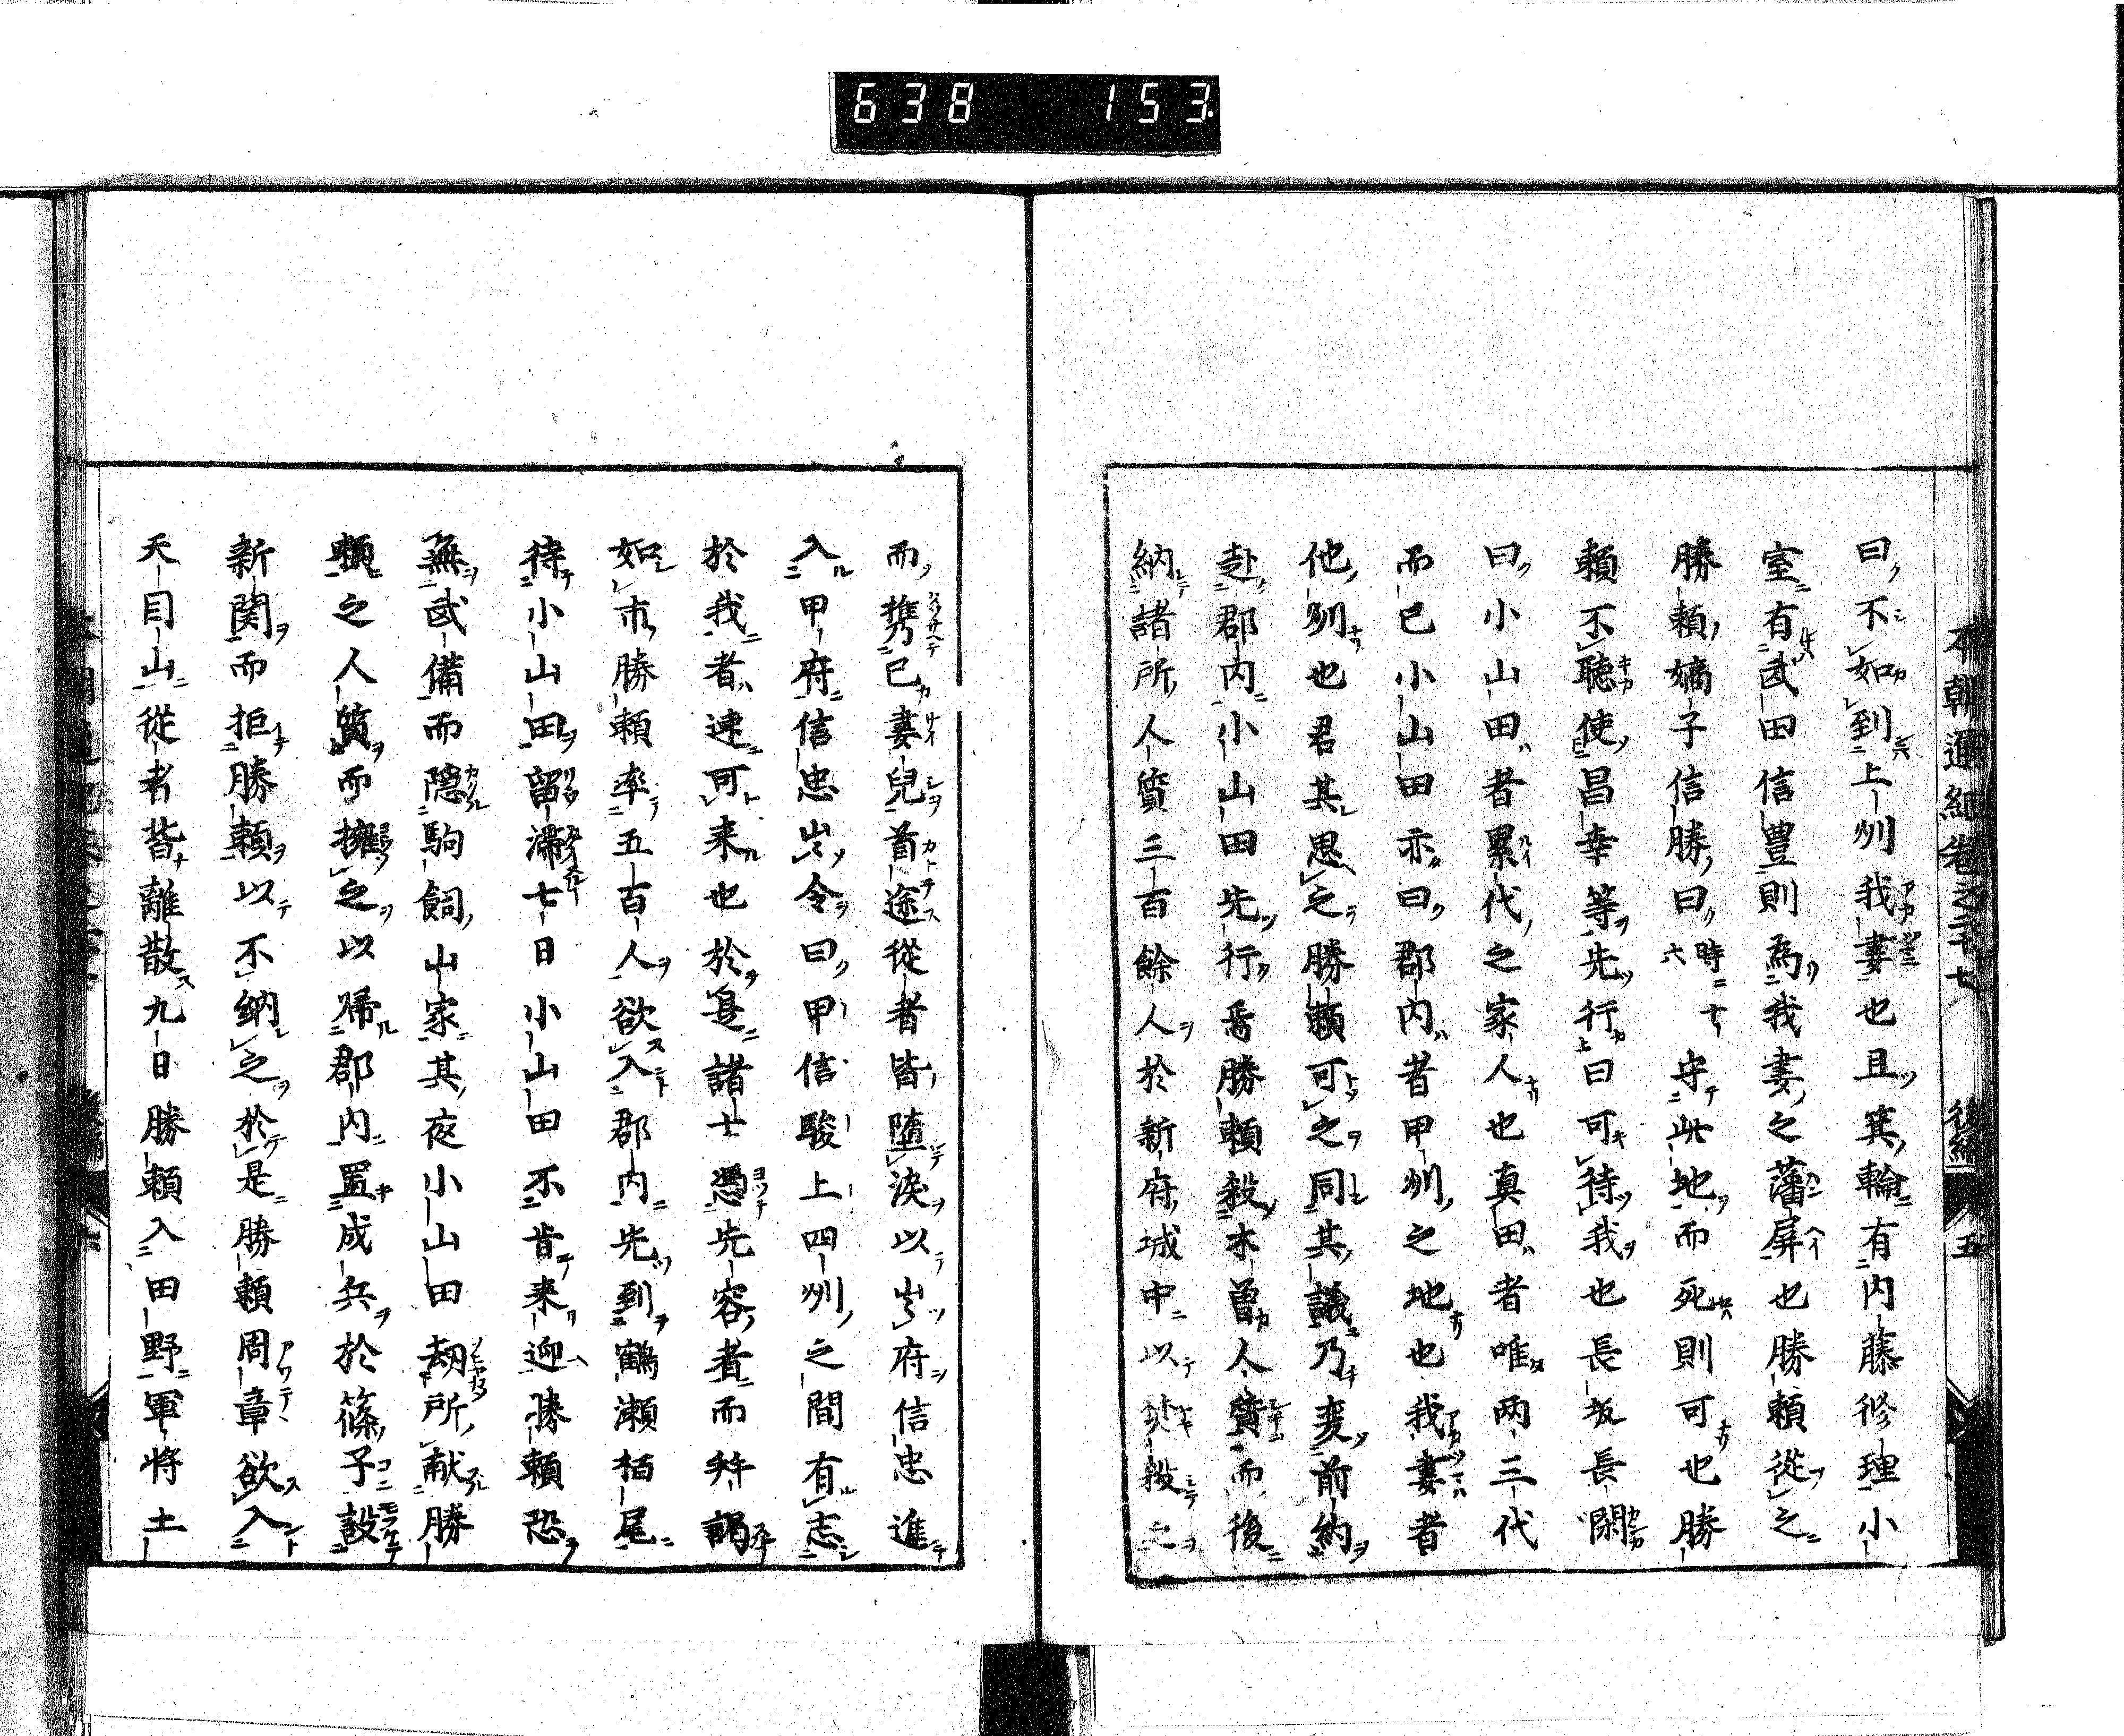 638 153
本朝通紀卷之二十七 後編 五
曰不如到上州我妻也且箕輪有内藤修理小
室有武田信豊則為我妻之藩屏也勝頼從之
勝頼嫡子信勝曰時十六守此地而死則可也勝
頼不聽使昌幸等先行曰可待我也長坂長閑
曰小山田者累代之家人也真田者唯兩三代
而已小山田亦曰郡内者甲州之地也我妻者
他州也君其思之勝頼可之同其議乃変前約
赴郡内小山田先行焉勝頼殺木曽人質而後
納諸所人質三百餘人於新府城中以焚殺之
而攜己妻兒首途從者皆墮淚以出府信忠進
入甲府信忠出令曰甲信駿上四州之間有志
於我者速可来也於是諸士憑先容者而拜謁
如市勝頼率五百人欲入郡内先到鶴瀬栢尾
待小山田留滞七日小山田不肯来迎勝頼恐
無武備而隠駒飼山家其夜小山田刼所献勝
頼之人質而擁之以帰郡内置成兵於篠子設
新関而拒勝頼以不納之於是勝頼周章欲入
天目山從者皆離散九日勝頼入田野軍將土